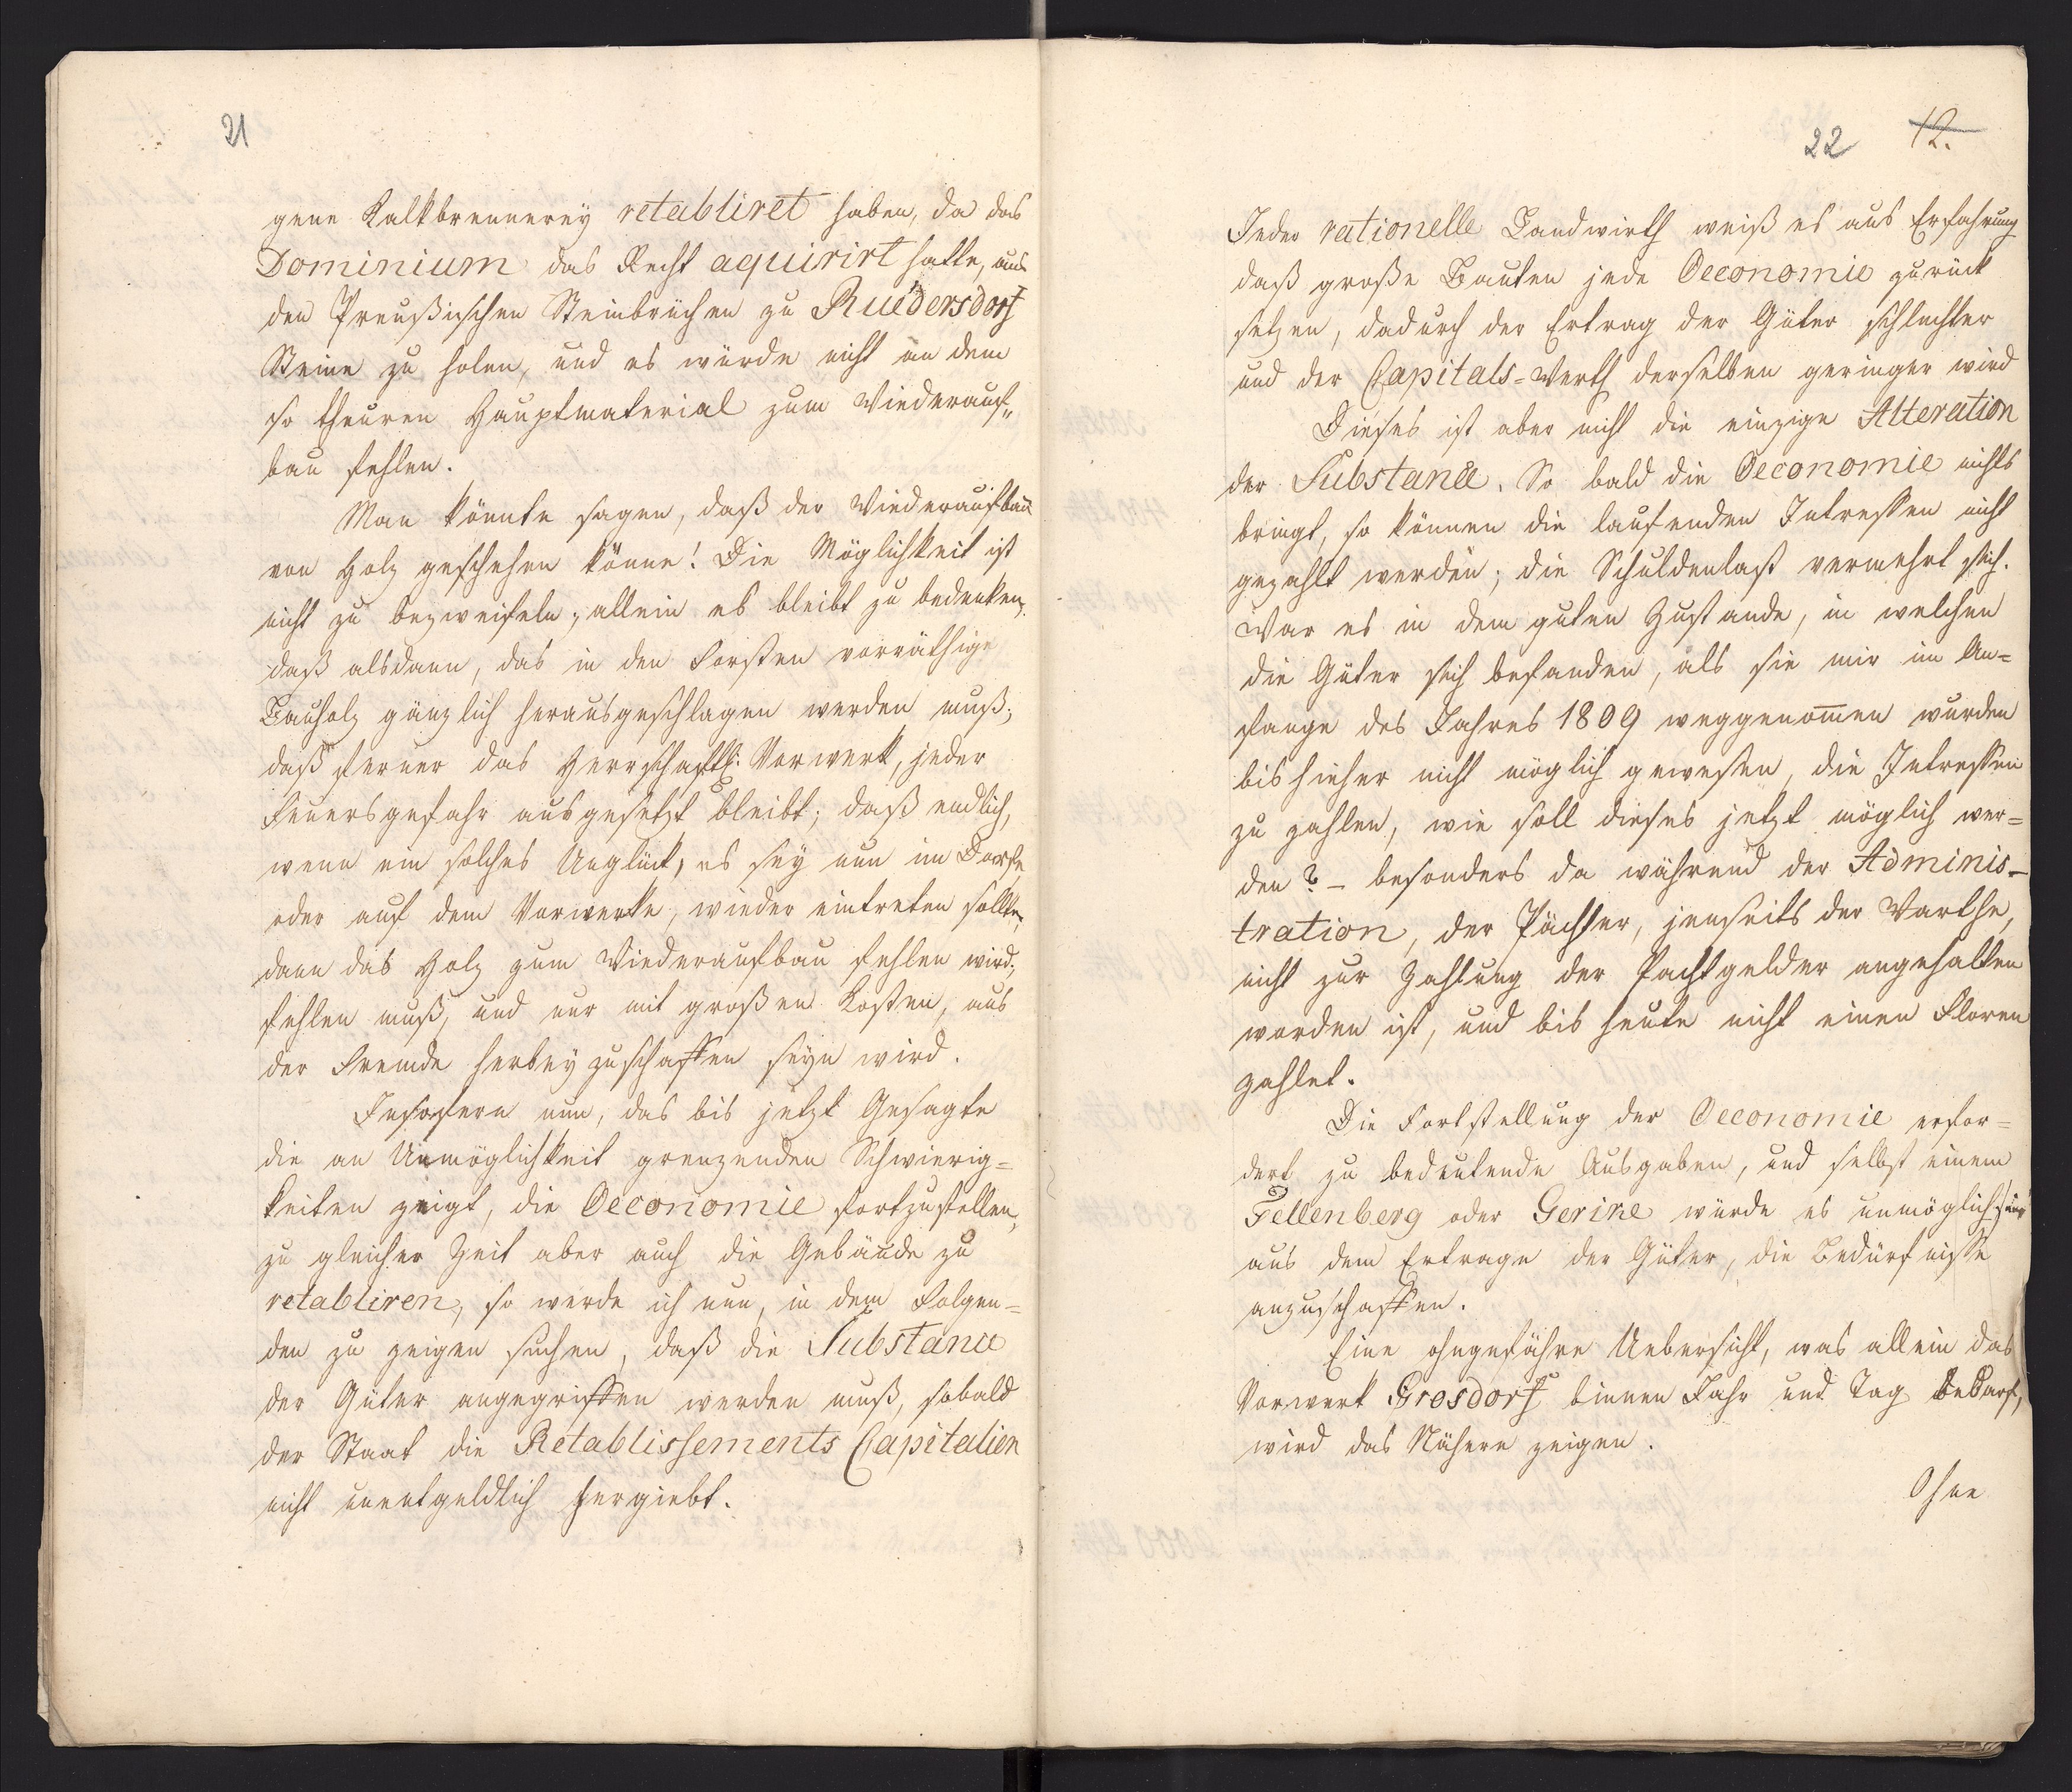 21
gene Kalkbrennerey retabliret haben, da das
Dominium das Recht aquirirt hatte, aus
den Preußischen Steinbrüchen zu Ruedersdorf
Steine zu holen, und es würde nicht an dem
so theuren Hauptmaterial zum Wiederauf„
bau fehlen.
Man könnte sagen, daß der Wiederaufbau
von Holz geschehen könne! Die Möglichkeit ist
nicht zu bezweifeln; allein es bleibt zu bedenken,
daß alsdann, das in den Forsten vorräthige
Bauholz gänzlich herausgeschlagen werden muß;
daß ferner das Herrschaftl: Vorwerk, jeder
Feuersgefahr ausgesetzt bleibt; daß endlich,
wenn ein solches Unglück, es sey nun im Dorfe
oder auf dem Vorwerke, wieder eintreten sollte,
dann das Holz zum Wiederaufbau fehlen wird,
fehlen muß, und nur mit großen Kosten, aus
der Fremde herbeyzuschaffen seyn wird.
Insofern nun, das bis jetzt Gesagte
die an Unmöglichkeit grenzenden Schwierig=
keiten zeigt, die Oeconomie fortzustellen,
zu gleicher Zeit aber auch die Gebäude zu
retabliren, so werde ich nun, in dem Folgen=
den zu zeigen suchen, daß die Substance
der Güter angegriffen werden muß, sobald
der Staat die Retablissements Capitalien
nicht unentgeldlich hergiebt.
22 12.
Jeder rationelle Landwirth weiß es aus Erfahrung
daß große Bauten jede Oeconomie zurück
setzen, dadurch der Ertrag der Güter schlechter
und der Capitals=Werth derselben geringer wird
Dieses ist aber nicht die einzige Alteration
der Substance. So bald die Oeconomie nichts
bringt, so können die laufenden Intressen nicht
gezahlt werden; die Schuldenlast vermehrt sich.
War es in dem guten Zustande, in welchen
die Güter sich befanden, als sie mir im An=
fange des Jahres 1809 weggenom̅en wurden
bishieher nicht möglich gewesen, die Intressen
zu zahlen, wie soll dieses jetzt möglich wer=
den? – besonders da während der Adminis–
tration, der Pächter, jenseits der Warthe,
nicht zur Zahlung der Pachtgelder angehalten
worden ist, und bis heute nicht einen Floren
zahlet.
Die Fortstellung der Oeconomie erfor=
dert zu bedeutende Ausgaben, und selbst einem
Fellenberg oder Gerike würde es unmöglich seyn
aus dem Ertrage der Güter, die Bedürfnisse
anzuschaffen.
Eine ohngefähre Uebersicht, was allein das
Vorwerk Grosdorf binnen Jahr und Tag bedarf,
wird das Nähere zeigen.
Ohne